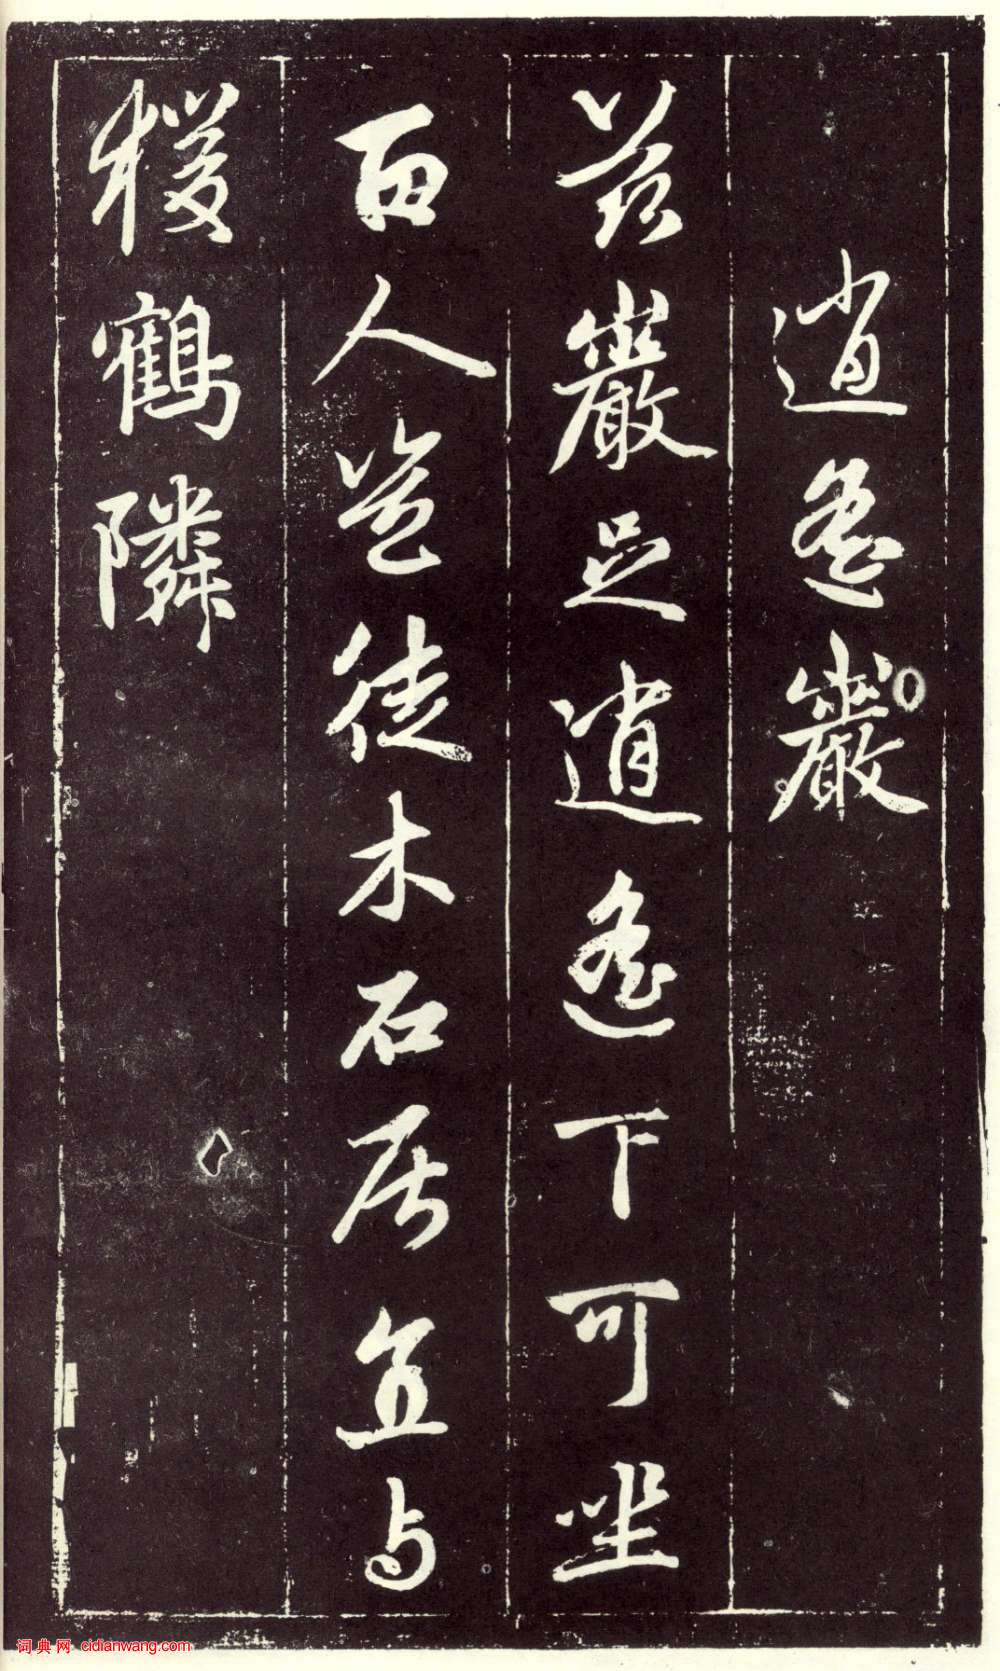 逍遥巖
茲巖足逍遥下可坐
百人豈徒木石居宜与
猨鶴隣
词典网 cidianwang.com